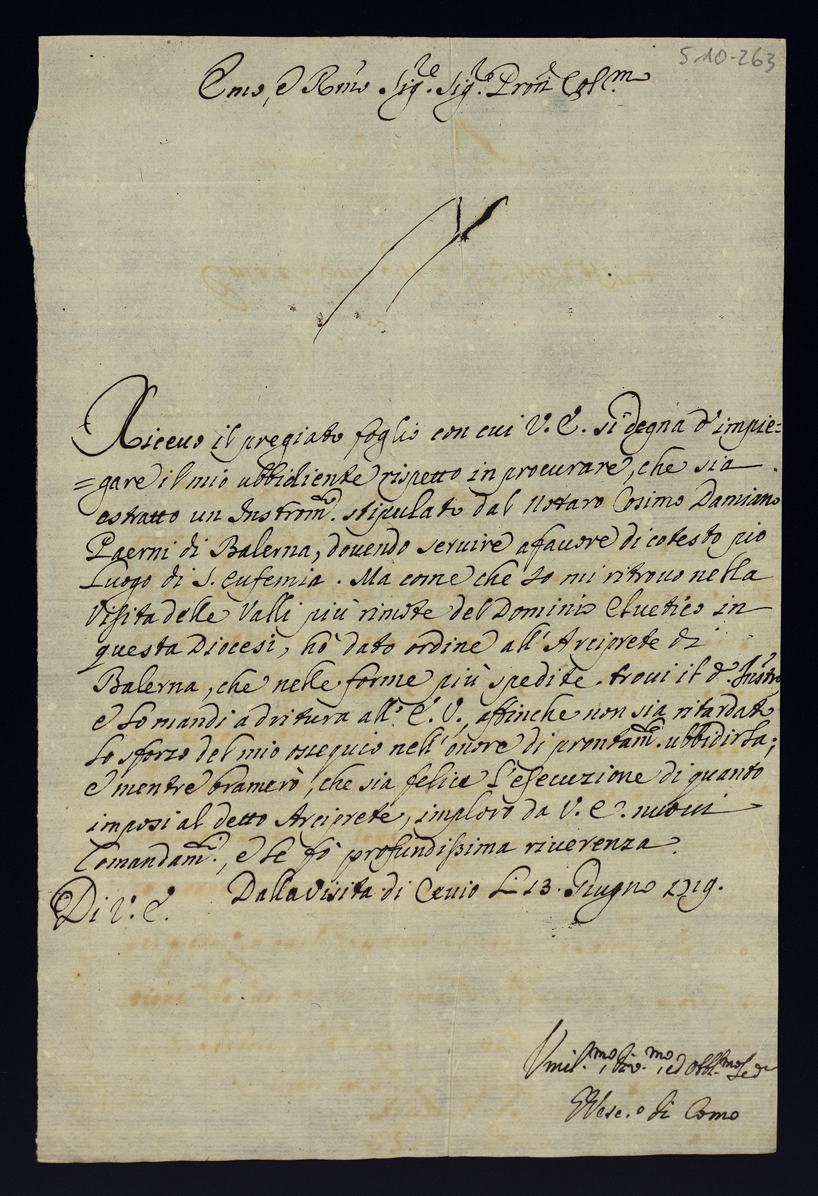 5-10-263
Emo, e Rmo Sig.re Sig.r Pron Col.mo
Ricevo il pregiato foglio con cui V. E. si degna d'impie=
=gare il mio ubbidiente rispetto in procurare, che sia
estratto un Instrom.to stipulato dal Notaro Cosimo Damiano
Paerni di Balerna, dovendo servire a favore di cotesto pio
Luogo di S. Eufemia. Ma come che Io mi ritrovo nella
Visita delle Valli più rimote del Dominio Elvetico in
questa Diocesi, hò dato ordine all'Arciprete di
Balerna, che nelle forme più spedite trovi il d.o Instro
e lo mandi a dritura all'E. V., affinche non sia ritardato
lo sforzo del mio ossequio nell'onore di prontam.te ubbidirla;
e mentre bramerò, che sia felice l'esecuzione di quanto
imposi al detto Arciprete, imploro da V. E. nuovi
Comandam.ti, e le fò profundissima riverenza.
Di V. E. Dalla visita di Cevio Li 13. Giugno 1719.
Umil.mo, Div.mo, ed Obbl.mo Se.re
Il Vesc.o di Como